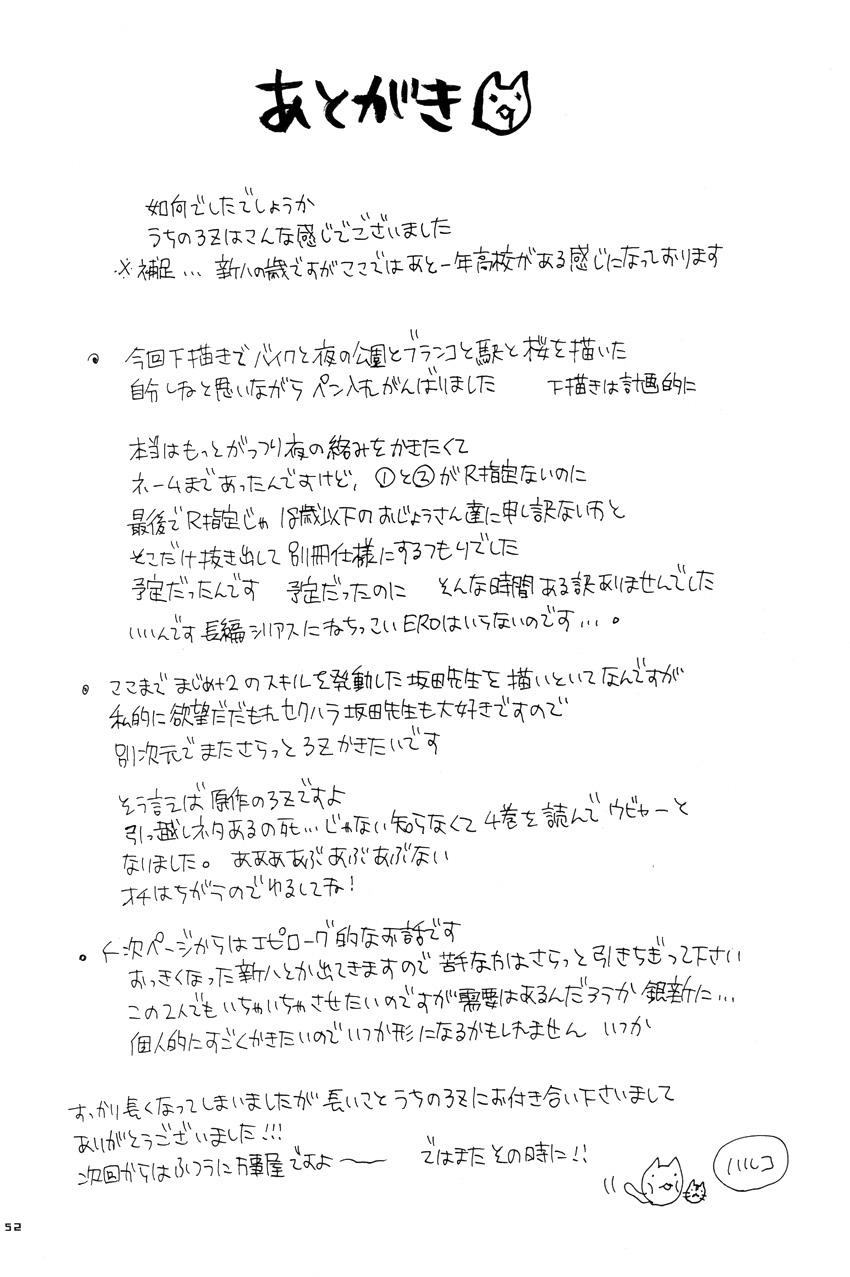 あとがき
如何でしたでしょうか
うちの3Zはこんな感じでございました
※補足… 新八の歳ですがここではあと一年高校がある感じになっております
今回下描きでバイクと夜の公園とブランコと駅と桜を描いた
自分しねと思いながらペン入れがんばりました 下描きは計画的に
本当はもっとがっつり夜の絡みをかきたくて
ネームまであったんですけど、①と②がR指定ないのに
最後でR指定じゃ 18歳以下のおじょうさん達に申し訳ないわと
そこだけ抜き出して別冊仕様にするつもりでした
予定だったんです 予定だったのに そんな時間ある訳ありませんでした
いいんです長編シリアスにねちっこいEROはいらないのです…。
ここまでまじめ+2のスキルを発動した坂田先生を描いといてなんですが
私的に欲望だだもれセクハラ坂田先生も大好きですので
別次元でまたさらっと3Zかきたいです
そう言えば原作の3Zですよ
引っ越しネタあるの死…じゃない知らなくて4巻を読んでウビャーと
なりました。ああああぶあぶあぶない
オチはちがうのでゆるしてね!
次ページからはエピローグ的なお話です
おっきくなった新八とか出てきますので苦手な方はさらっと引きちぎって下さい
この2人でもいちゃいちゃさせたいのですが需要はあるんだろうか銀新に…
個人的にすごくかきたいのでいつか形になるかもしれません いつか
すっかり長くなってしまいましたが長いことうちの3Zにお付き合い下さいまして
ありがとうございました!!!
次回からはふつうに万事屋ですよ〜 ではまたその時に!!
ハルコ
52